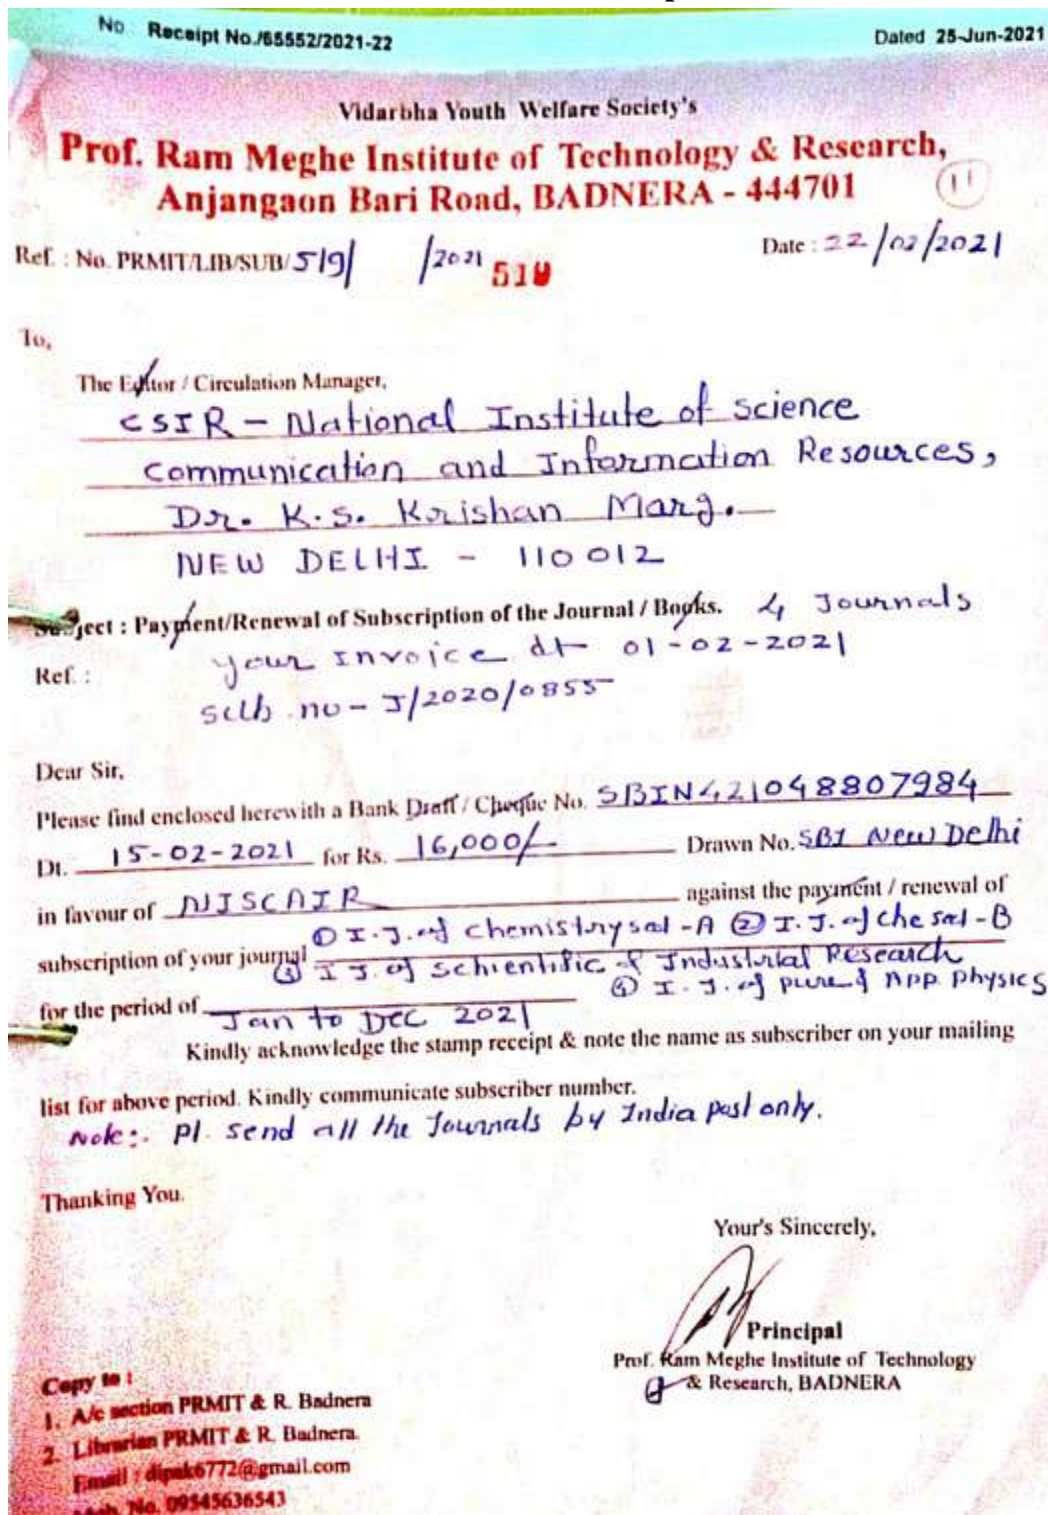 No Receipt No./65552/2021-22 Dated 25-Jun-2021
Vidarbha Youth Welfare Society's
Prof. Ram Meghe Institute of Technology & Research,
Anjangaon Bari Road, BADNERA - 444701
11
Ref. : No. PRMIT/LIB/SUB/ 519/ /2021 519
Date : 22/02/2021
To,
The Editor / Circulation Manager,
CSIR - National Institute of science
Communication and Information Resources,
Dr. K.S. Krishan Marg.
NEW DELHI - 110012
Subject : Payment/Renewal of Subscription of the Journal / Books. 4 Journals
Ref. : your Invoice dt 01-02-2021
no - J/2020/0855
Dear Sir,
Please find enclosed herewith a Bank Draff / Cheque No. SBIN421048807984
Dt. 15-02-2021 for Rs. 16,000/- Drawn No. SBI New Delhi
in favour of NISCAIR against the payment / renewal of
subscription of your journal ① I.J. of chemistry - A ② I.J. of che - B
③ I J. of Schientific & Industrial Research
④ I. J. of pure & App. physics
for the period of Jan to Dec 2021
Kindly acknowledge the stamp receipt & note the name as subscriber on your mailing
list for above period. Kindly communicate subscriber number.
Note:. Pl. send all the Journals by India post only.
Thanking You.
Your's Sincerely,
Principal
Prof. Ram Meghe Institute of Technology
& Research, BADNERA
Copy to :
1. A/c section PRMIT & R. Badnera
2. Librarian PRMIT & R. Badnera.
Email : dipak6772@gmail.com
Mob. No. 09545636543